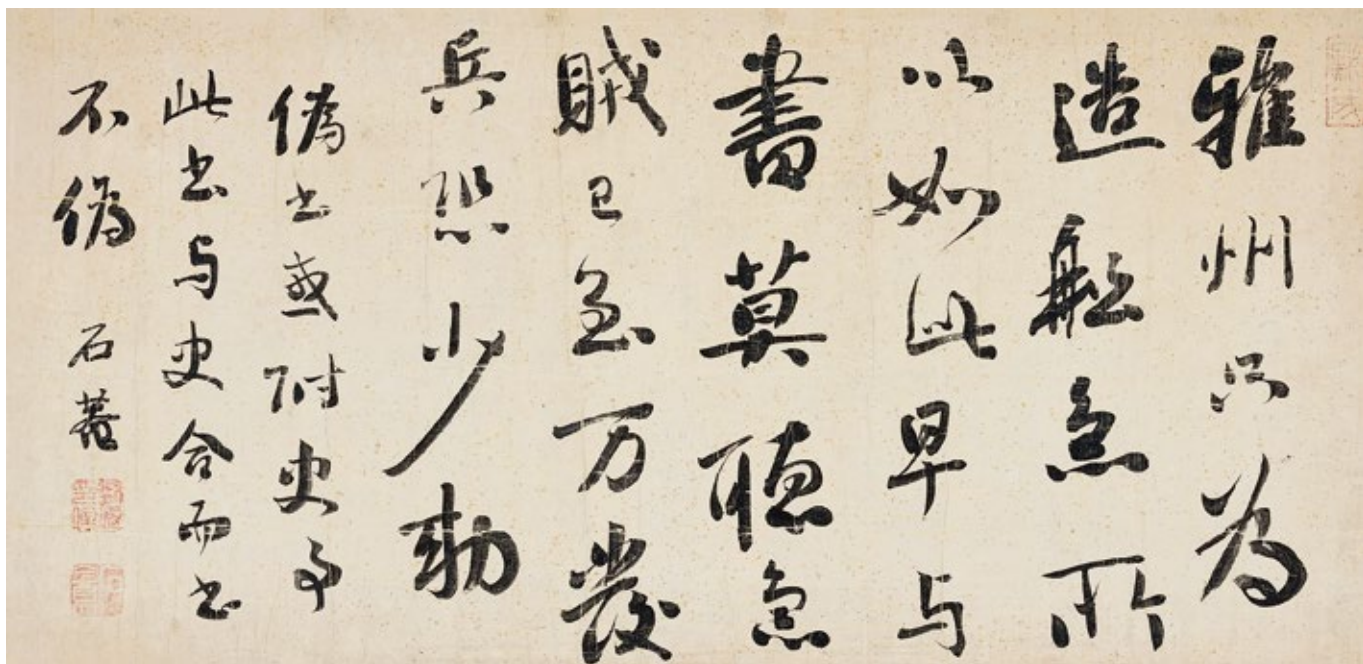 雅州只為
造船急所
以如此早与
書莫聽急
賊已至万發
兵恐少勅
偽书或附史事
此书与史合而书
不偽 石菴